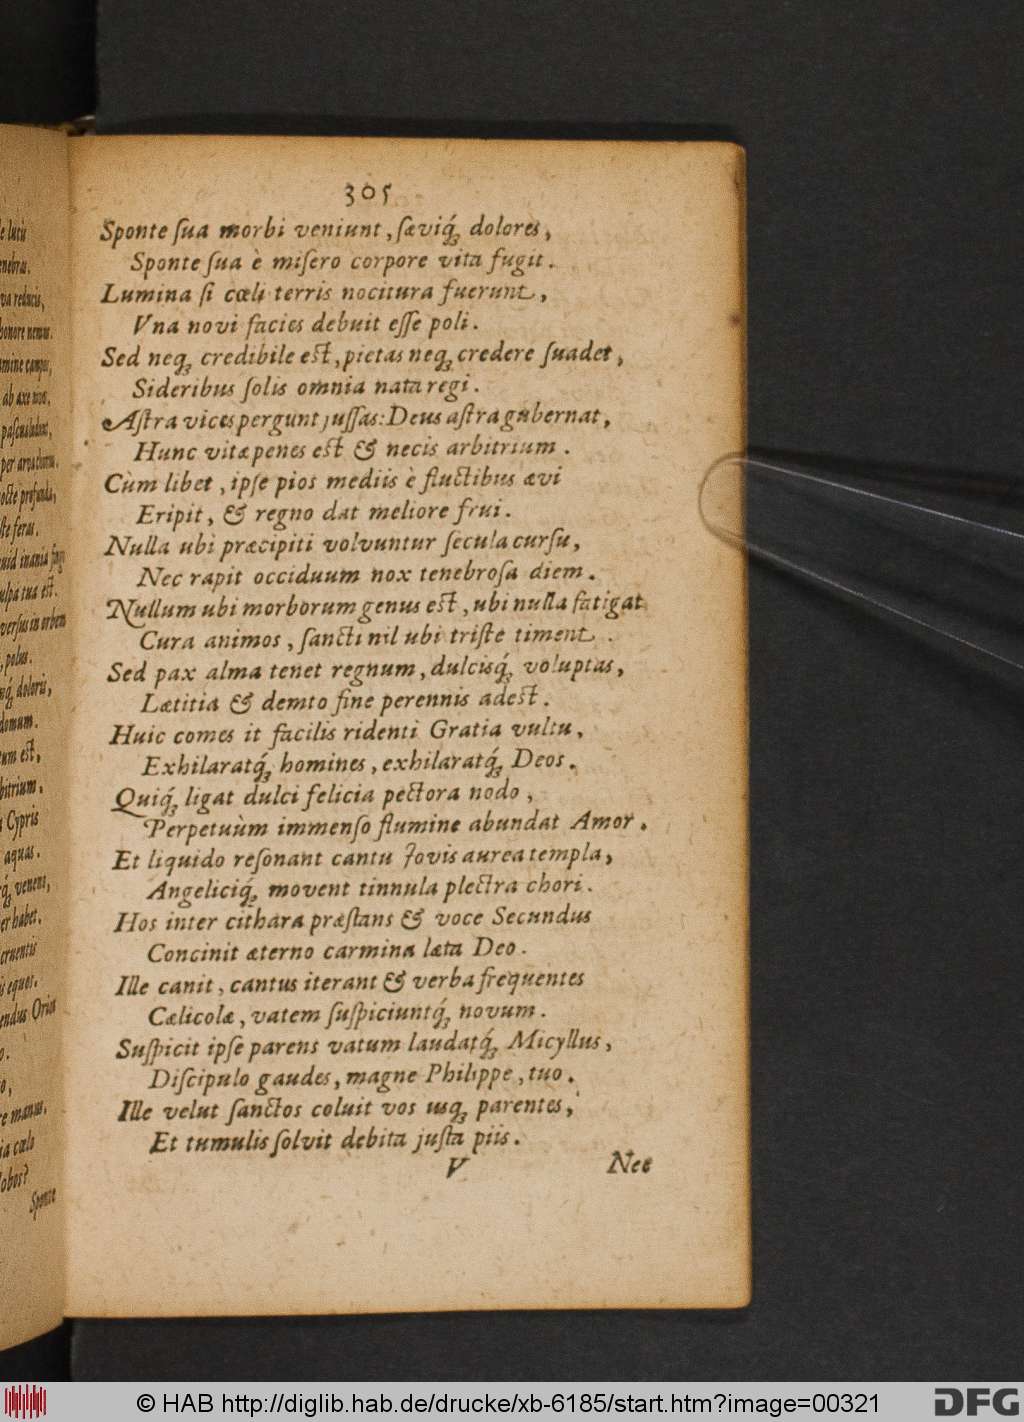 305
Sponte ſua morbi veniunt, ſæviq́; dolores,
Sponte ſua è miſero corpore vita fugit.
Lumina ſi cœli terris nocitura fuerunt,
Vna novi facies debuit eſſe poli.
Sed neq; credibile eſt, pietas neq; credere ſuadet,
Sideribus ſolis omnia nata regi.
Aſtra vices pergunt juſſas: Deus aſtra gubernat,
Hunc vitæ penes eſt & necis arbitrium.
Cùm libet, ipſe pios mediis è fluctibus ævi
Eripit, & regno dat meliore frui.
Nulla ubi præcipiti volvuntur ſecula curſu,
Nec rapit occiduum nox tenebroſa diem.
Nullum ubi morborum genus eſt, ubi nulla fatigat
Cura animos, ſancti nil ubi triſte timent.
Sed pax alma tenet regnum, dulcisq́; voluptas,
Lætitia & demto fine perennis adeſt.
Huic comes it facilis ridenti Gratia vultu,
Exhilaratq́; homines, exhilaratq́; Deos.
Quiq́; ligat dulci felicia pectora nodo,
Perpetuùm immenſo flumine abundat Amor.
Et liquido reſonant cantu Jovis aurea templa,
Angeliciq́; movent tinnula plectra chori.
Hos inter cithara præſtans & voce Secundus
Concinit æterno carmina læta Deo.
Ille canit, cantus iterant & verba frequentes
Cælicolæ, vatem ſuſpiciuntq́; novum.
Suſpicit ipſe parens vatum laudatq́; Micyllus,
Diſcipulo gaudes, magne Philippe, tuo.
Ille velut ſanctos coluit vos usq; parentes,
Et tumulis ſolvit debita juſta piis.
V Nec
e lutù
enebras.
va reducis,
honore nemus.
amine campus,
ab axe nox.
per arva
octe profunda,
ſte feras.
uid inania
ulpa tua eſt.
verſus in orbem
, polus.
sq́; doloris,
domum.
um eſt,
bitrium.
Cypris
aquas.
q́; venens,
er habet.
cruentis
s equos.
endus Orion
o.
o,
re manus.
ia cœlo
lobos?
Sponte
© HAB http://diglib.hab.de/drucke/xb-6185/start.htm?image=00321
DFG